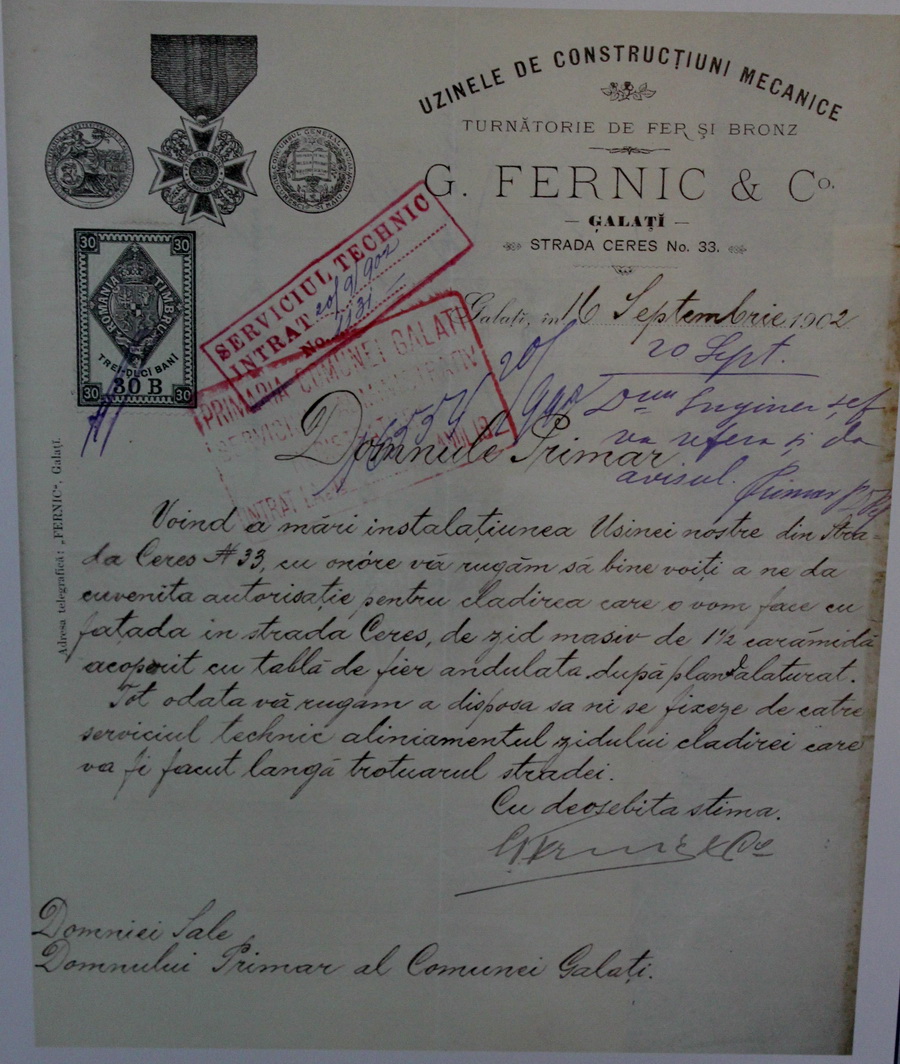 UZINELE DE CONSTRUCȚIUNI MECANICE
TURNĂTORIE DE FER ȘI BRONZ
G. FERNIC & Co.
— GALAȚĬ —
STRADA CERES No. 33.
30 30
ROMANIA TIMBRU
TREI-DECI BANI
30 30 B 30
SERVICIUL TECHNIC
INTRAT 20/9/902
No. 1131
PRIMĂRIA COMUNEI GALAȚI
Galați, in 16 Septembrie 1902
20 Sept.
Dnu Inginer șef
va refera și da
avisul.
Primar
Domnule Primar
Adresa telegrafică: „FERNIC“, Galați.
Voind a mări instalațiunea Usinei nostre din Stra-
da Ceres № 33, cu onóre vă rugăm să bine voiți a ne da
cuvenita autorisație pentru cladirea care o vom face cu
fațada in strada Ceres, de zid masiv de 1½ carămidă
acoperit cu tablă de fier andulata după planul alaturat.
Tot odata vă rugam a disposa sa ni se fixeze de catre
serviciul technic aliniamentul zidului cladirei care
va fi facut langă trotuarul stradei.
Cu deosebita stima.
G Fernic & Co
Domniei Sale
Domnului Primar al Comunei Galați.